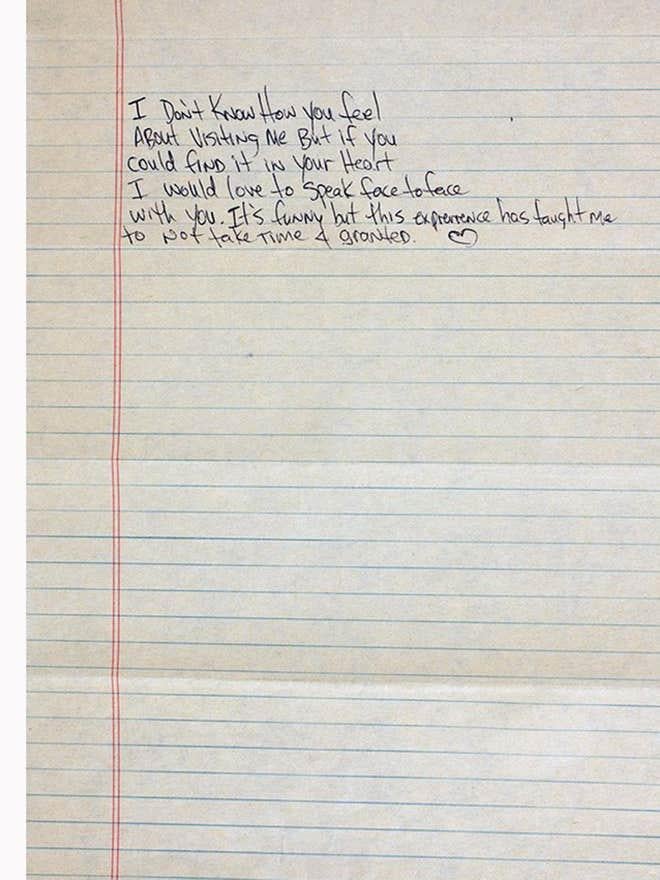 I Don't Know How you feel
About Visiting Me But if you
could find it in your Heart
I would love to speak face to face
with you. It's funny but this exprerrence has taught me
to Not take Time 4 granted. ♡